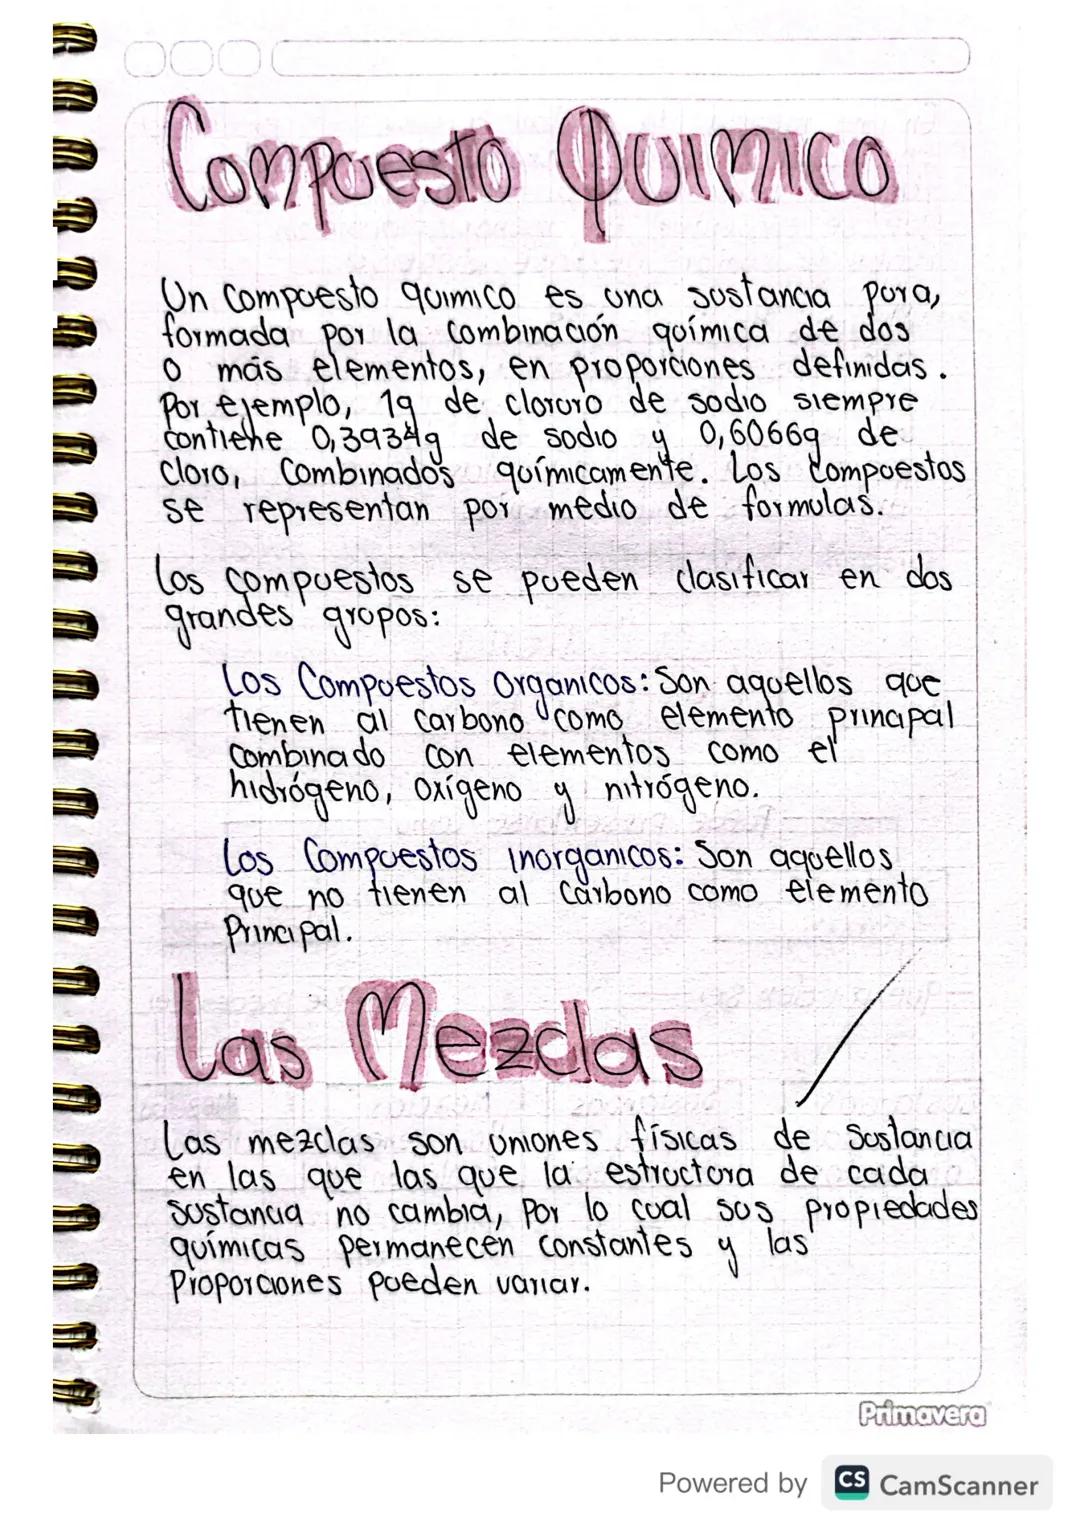 Compuesto Quimico
Un compuesto quimico es una sustancia pura,
formada por la combinación química de dos
o más elementos, en proporciones definidas.
Por ejemplo, 1g de cloruro de sodio siempre
contiene 0,3934g de sodio y 0,6066g de
cloro, combinados químicamente. Los compuestos
se representan por medio de formulas.
Los compuestos se pueden clasificar en dos
grandes grupos:
Los Compuestos Organicos: Son aquellos que
tienen al carbono como elemento principal
combinado con elementos como el
hidrógeno, oxígeno y nitrógeno.
Los Compuestos inorganicos: Son aquellos
que no tienen al Carbono como elemento
Principal.
Las Mezclas
Las mezclas son uniones físicas de Sustancia
en las que las que la estructura de cada
sustancia no cambia, Por lo cual sus propiedades
químicas permanecen constantes y las
Proporciones pueden variar.
Primavera
Powered by CS CamScanner